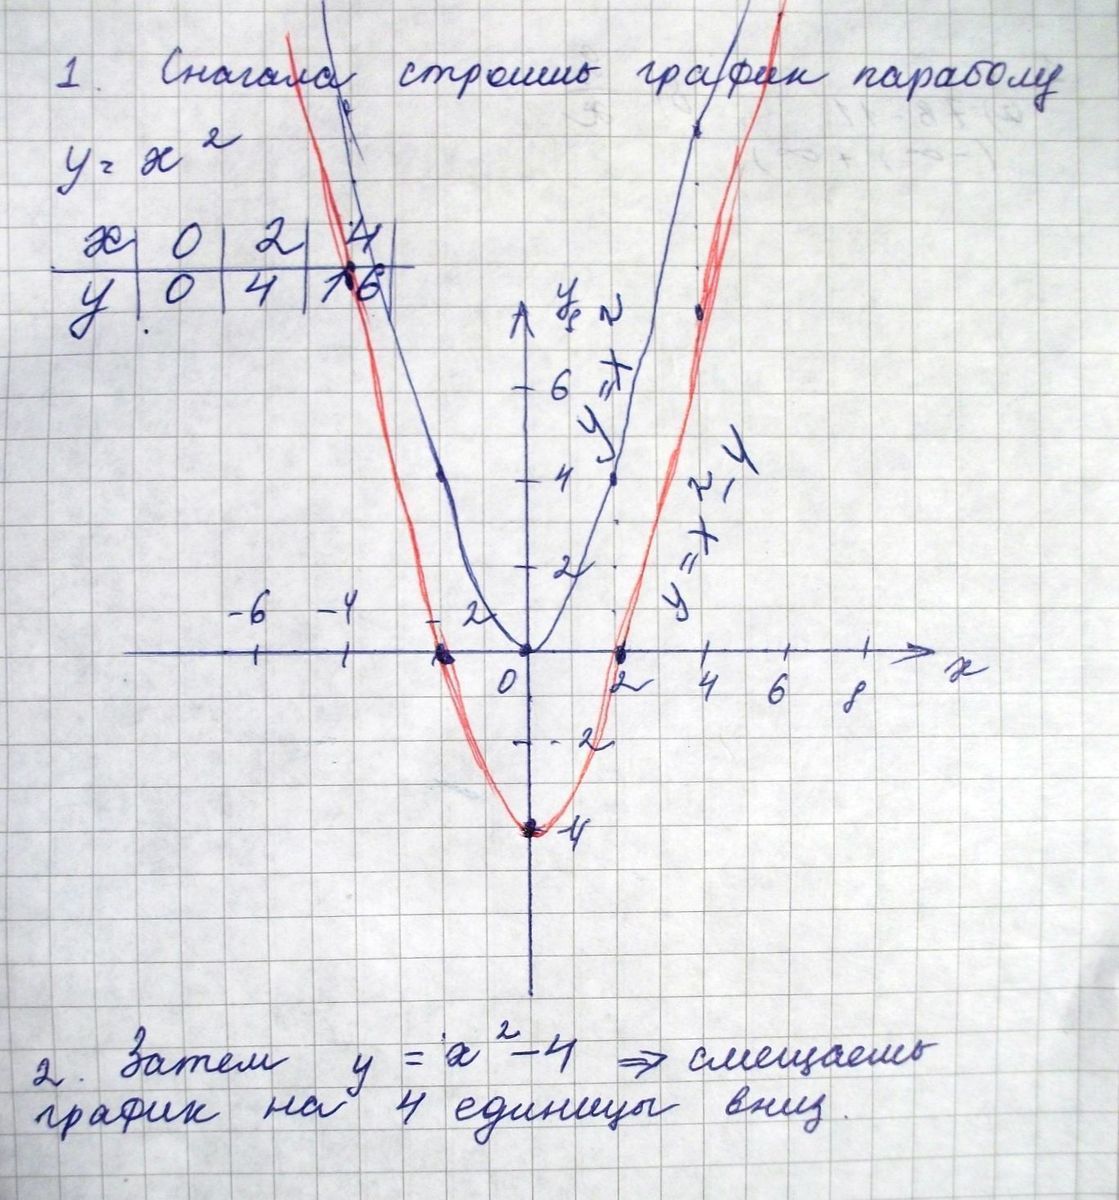 1. Сначала строишь график параболу
y = x²
x 0 2 4
y 0 4 16
y
8
6
4
2
y = x²
y = x² - 4
-6 -4 -2 0 2 4 6 8 x
-2
-4
2. Затем y = x² - 4 ⇒ смещаешь
график на 4 единицы вниз.